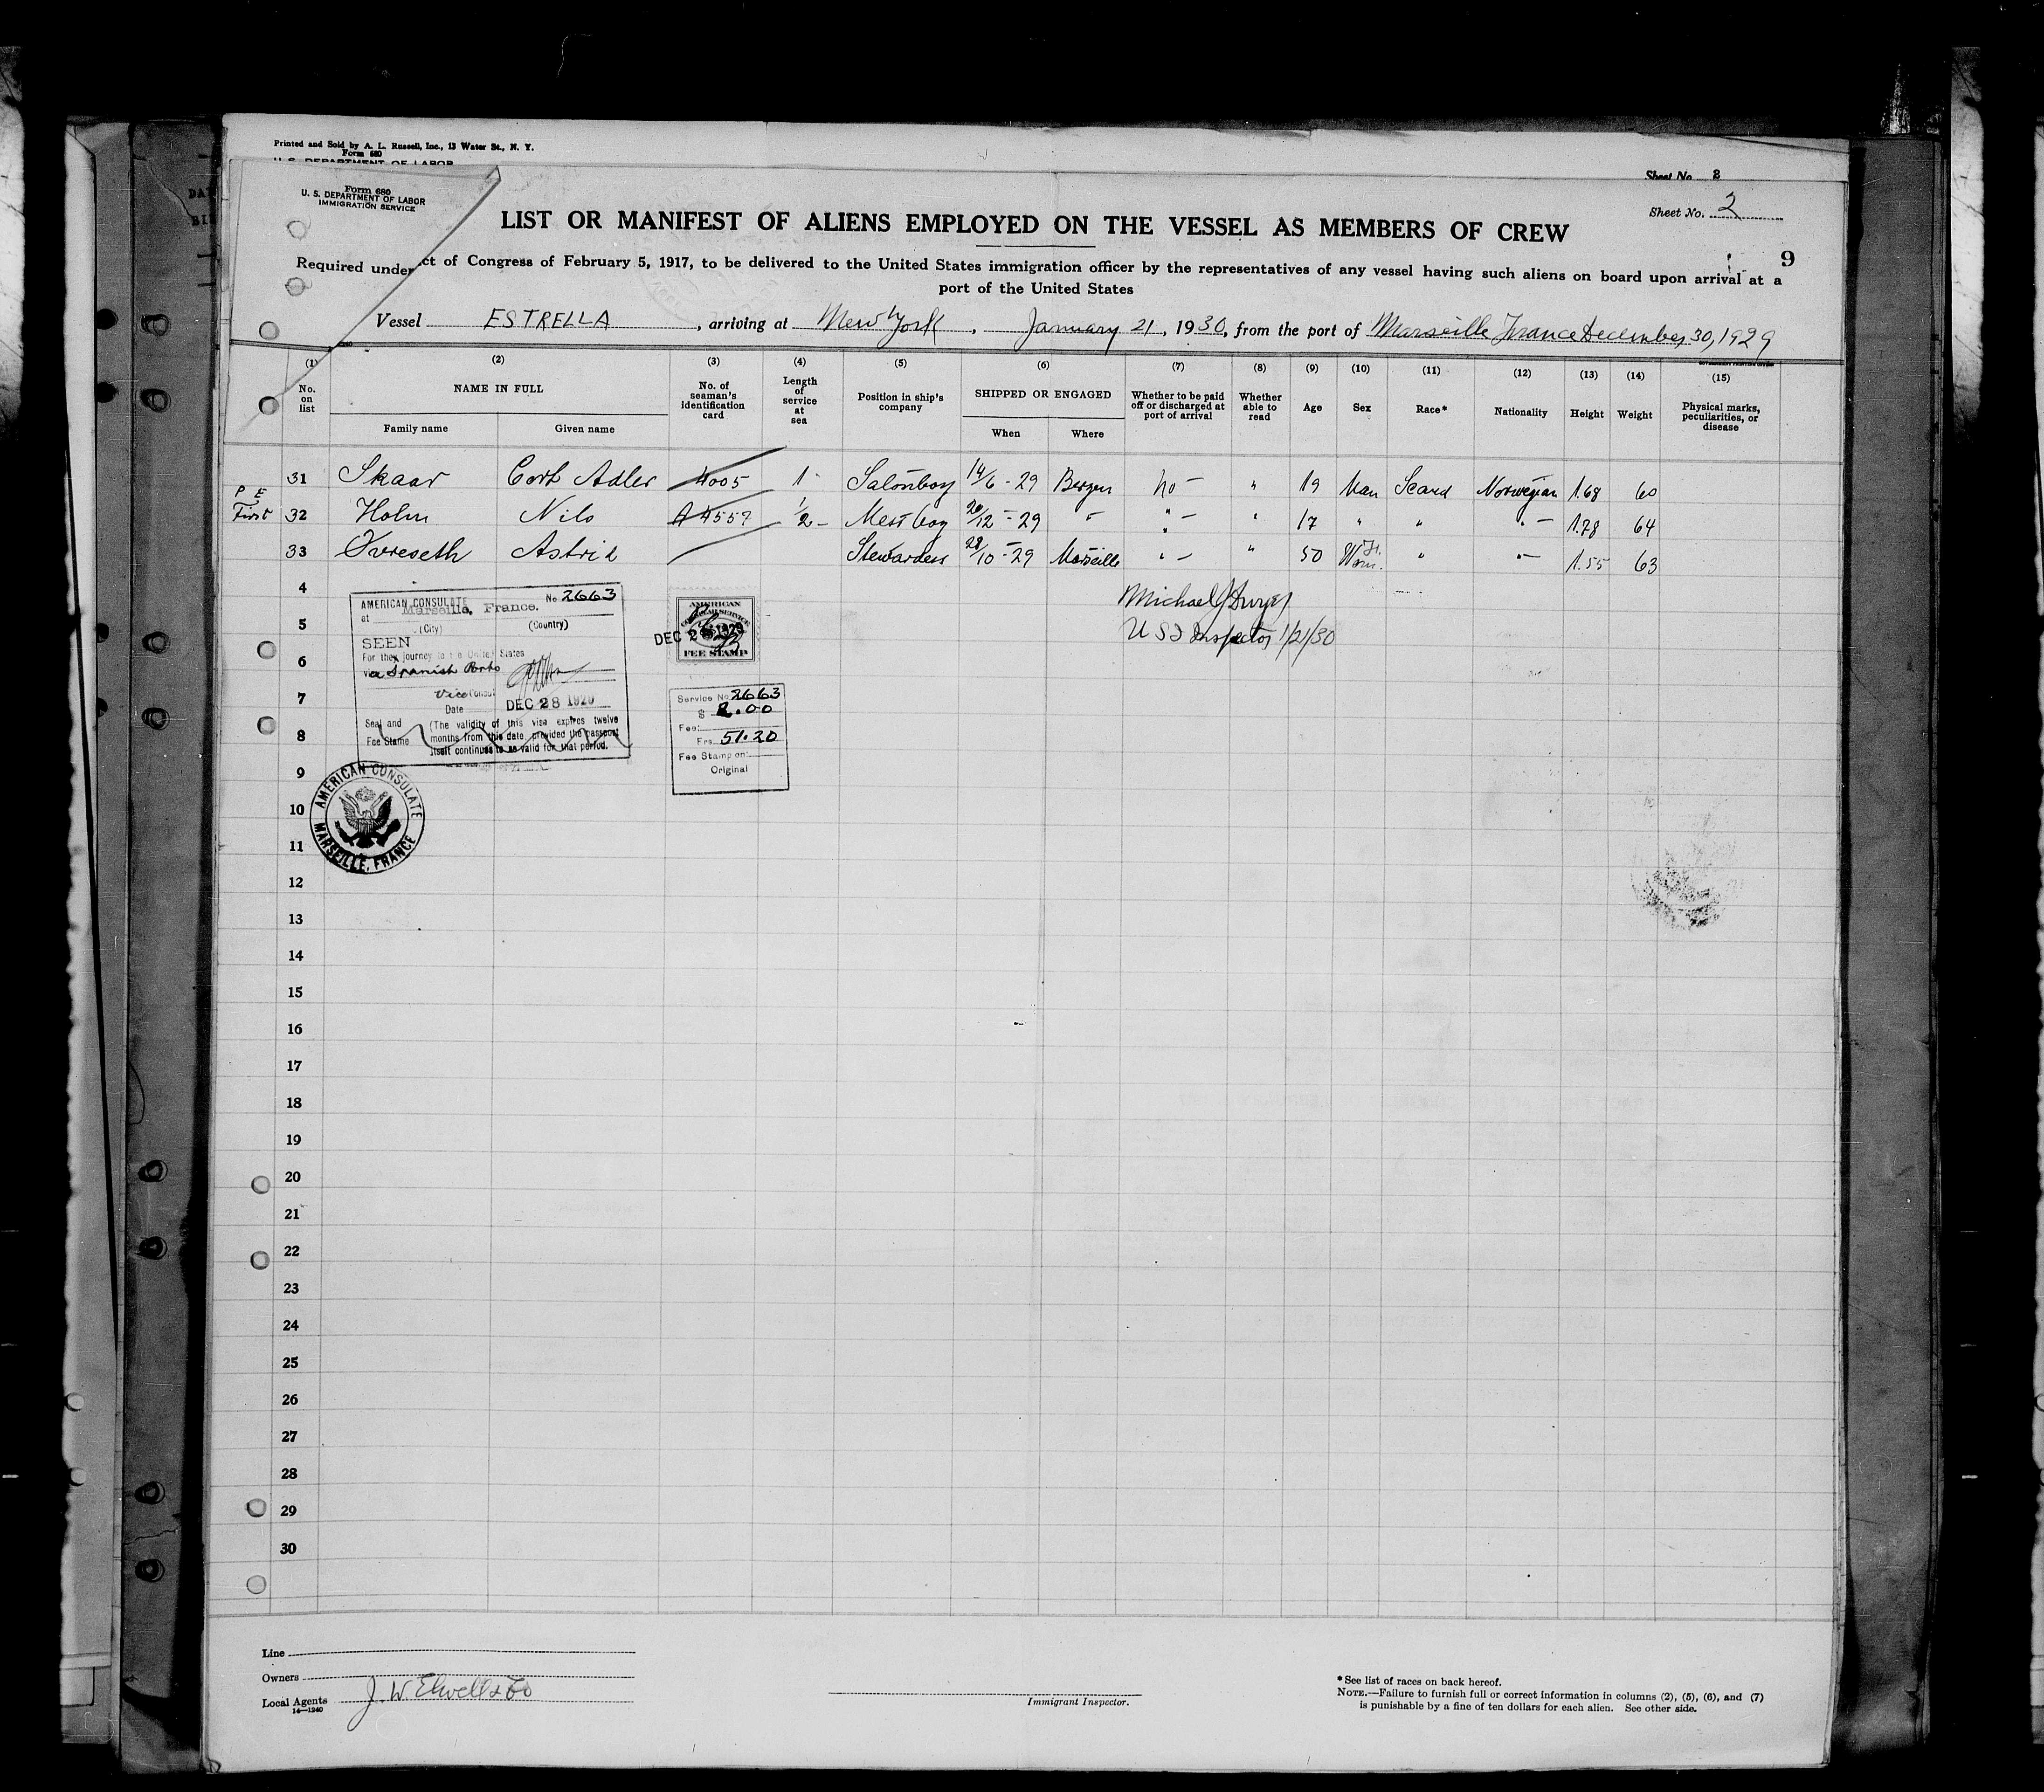 Printed and Sold by A. L. Russell, Inc., 13 Water St., N. Y.
Form 680
U. S. DEPARTMENT OF LABOR
Sheet No. 2
Form 680
U. S. DEPARTMENT OF LABOR
IMMIGRATION SERVICE
Sheet No. 2
LIST OR MANIFEST OF ALIENS EMPLOYED ON THE VESSEL AS MEMBERS OF CREW
9
Required under ct of Congress of February 5, 1917, to be delivered to the United States immigration officer by the representatives of any vessel having such aliens on board upon arrival at a
port of the United States
Vessel ESTRELLA, arriving at New York, January 21, 1930, from the port of Marseille France December 30, 1929
(1) (2) (3) (4) (5) (6) (7) (8) (9) (10) (11) (12) (13) (14) (15)
No. on list
NAME IN FULL
Family name
Given name
No. of seaman's identification card
Length of service at sea
Position in ship's company
SHIPPED OR ENGAGED
When
Where
Whether to be paid off or discharged at port of arrival
Whether able to read
Age
Sex
Race*
Nationality
Height
Weight
Physical marks, peculiarities, or disease
31 Skaar Cort Adler 4005 1 - Salonboy 14/6 - 29 Bergen no - " 19 Man Scand Norwegian 1.68 60
P E
First 32 Holm Nils A 4559 1/2 - Messboy 20/12 - 29 " " - " 17 " " " - 1.78 64
33 Astrid Stewardess 28/10 - 29 Marseille " - " 50 Wom. " " - 1.55 63
4
5
6
7
8
9
10
11
12
13
14
15
16
17
18
19
20
21
22
23
24
25
26
27
28
29
30
Michael J Dwyer
U S I Inspector 1/21/30
AMERICAN CONSULATE No. 2663
at Marseille, France.
(City) (Country)
SEEN
For the journey to the United States
via Spanish Ports
Vice Consul
Date DEC 28 1929
Seal and Fee Stamp
(The validity of this visa expires twelve
months from this date provided the passport
itself continues to be valid for that period.
AMERICAN
CONSULAR SERVICE
DEC 28 1929
FEE STAMP
Service No. 2663
$ 2.00
Fee:
Frs. 51.20
Fee Stamp on:
Original
AMERICAN CONSULATE
MARSEILLE, FRANCE
Line
Owners
Local Agents J. W. Elwell & Co
14—1240
Immigrant Inspector.
*See list of races on back hereof.
NOTE.—Failure to furnish full or correct information in columns (2), (5), (6), and (7)
is punishable by a fine of ten dollars for each alien. See other side.